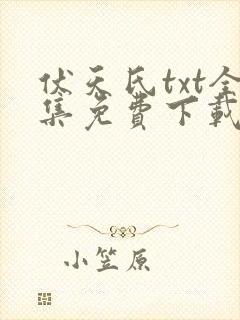 伏天氏txt全
集免費下載
小笠原